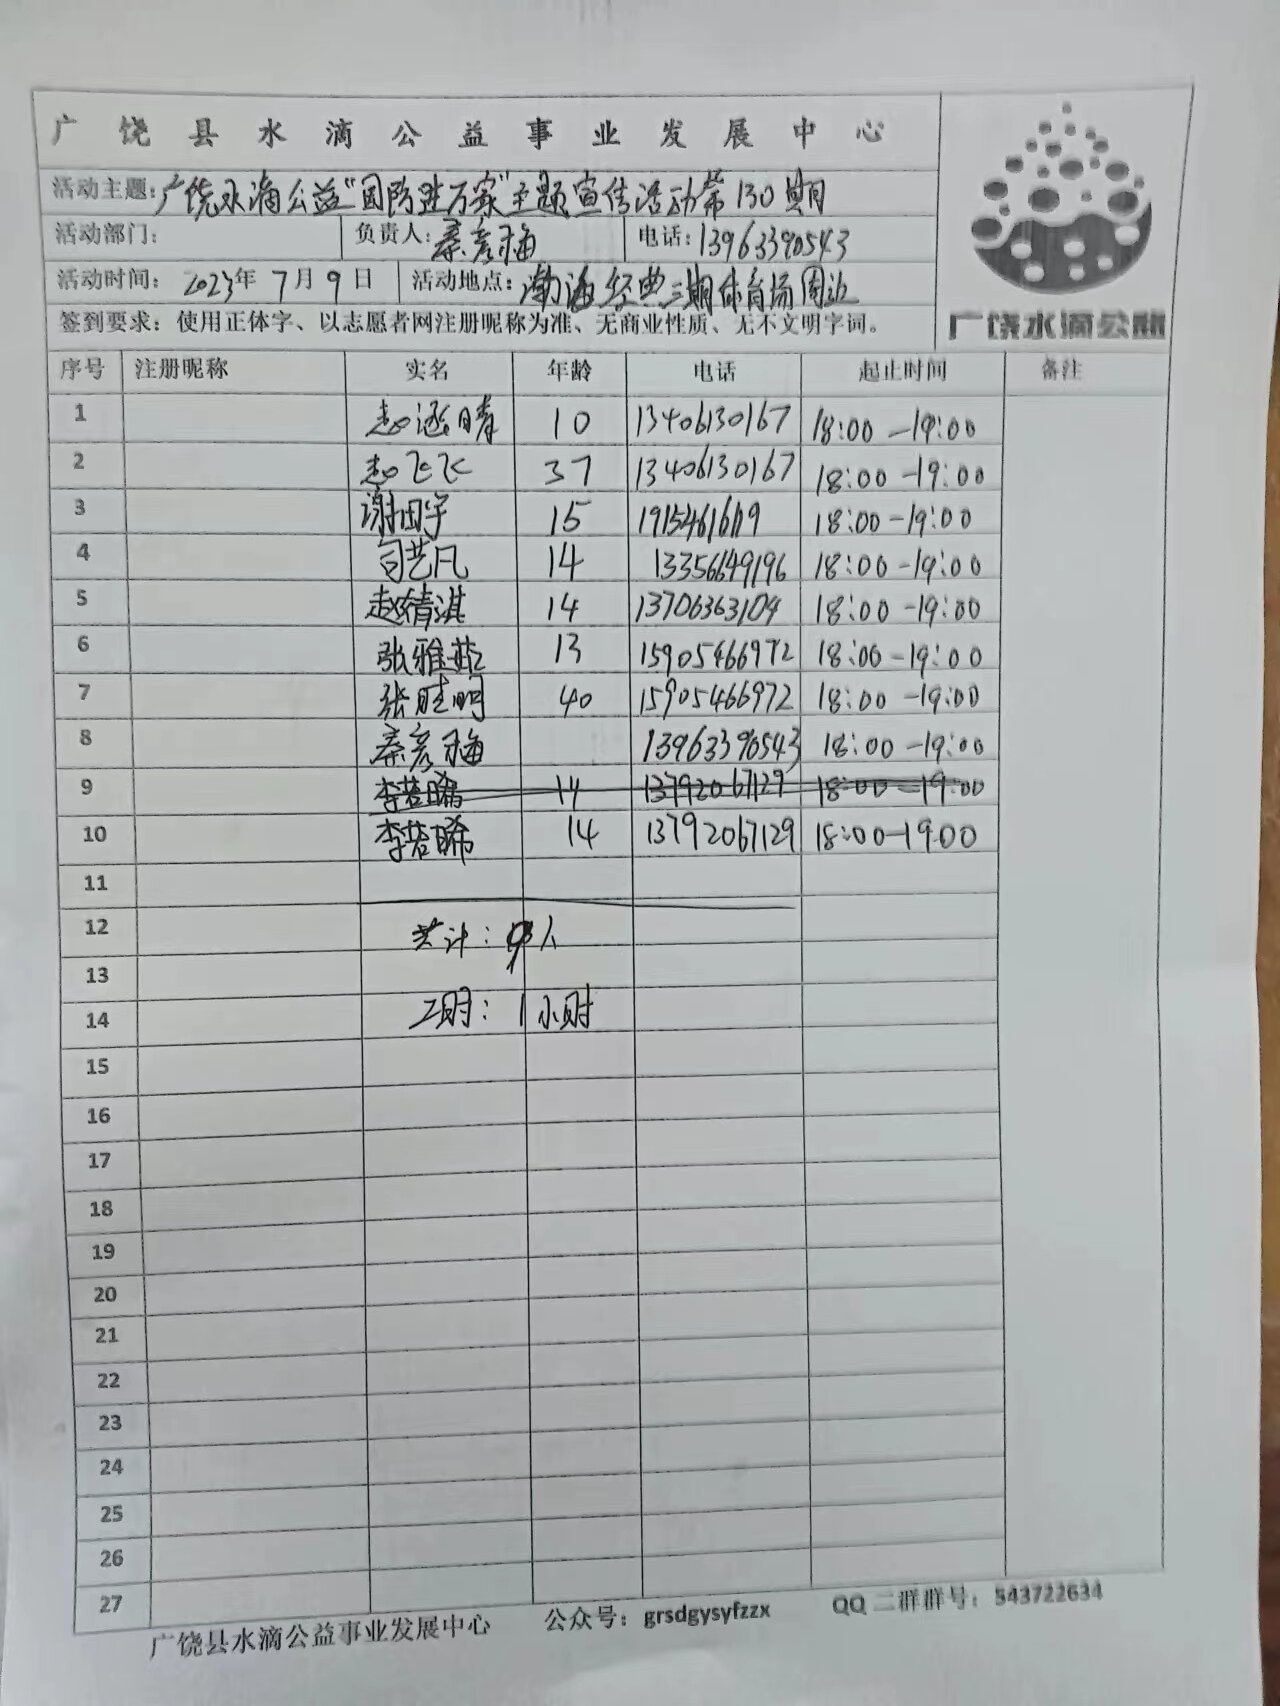 广饶县水滴公益事业发展中心
活动主题:广饶水滴公益“国防进万家”主题宣传活动第130期
活动部门: 负责人:秦彦梅 电话:13963390543
活动时间: 2023年 7月 9日 活动地点:渤海经典三期体育场周边
签到要求:使用正体字、以志愿者网注册昵称为准、无商业性质、无不文明字词。
广饶水滴公益
序号 注册昵称 实名 年龄 电话 起止时间 备注
1 赵涵晴 10 13406130167 18:00-19:00
2 赵飞飞 37 13406130167 18:00-19:00
3 谢田宇 15 18:00-19:00
4 司艺凡 14 13356649196 18:00-19:00
5 赵倩淇 14 13706363104 18:00-19:00
6 张雅茹 13 15905466972 18:00-19:00
7 张胜明 40 15905466972 18:00-19:00
8 秦彦梅 13963390543 18:00-19:00
9 李若曦 14 13792067129 18:00-19:00
10 李若晞 14 13792067129 18:00-19:00
11
12 共计:9人
13
14 工时:1小时
15
16
17
18
19
20
21
22
23
24
25
26
27
广饶县水滴公益事业发展中心 公众号:grsdgysyfzzx QQ二群群号:543722634